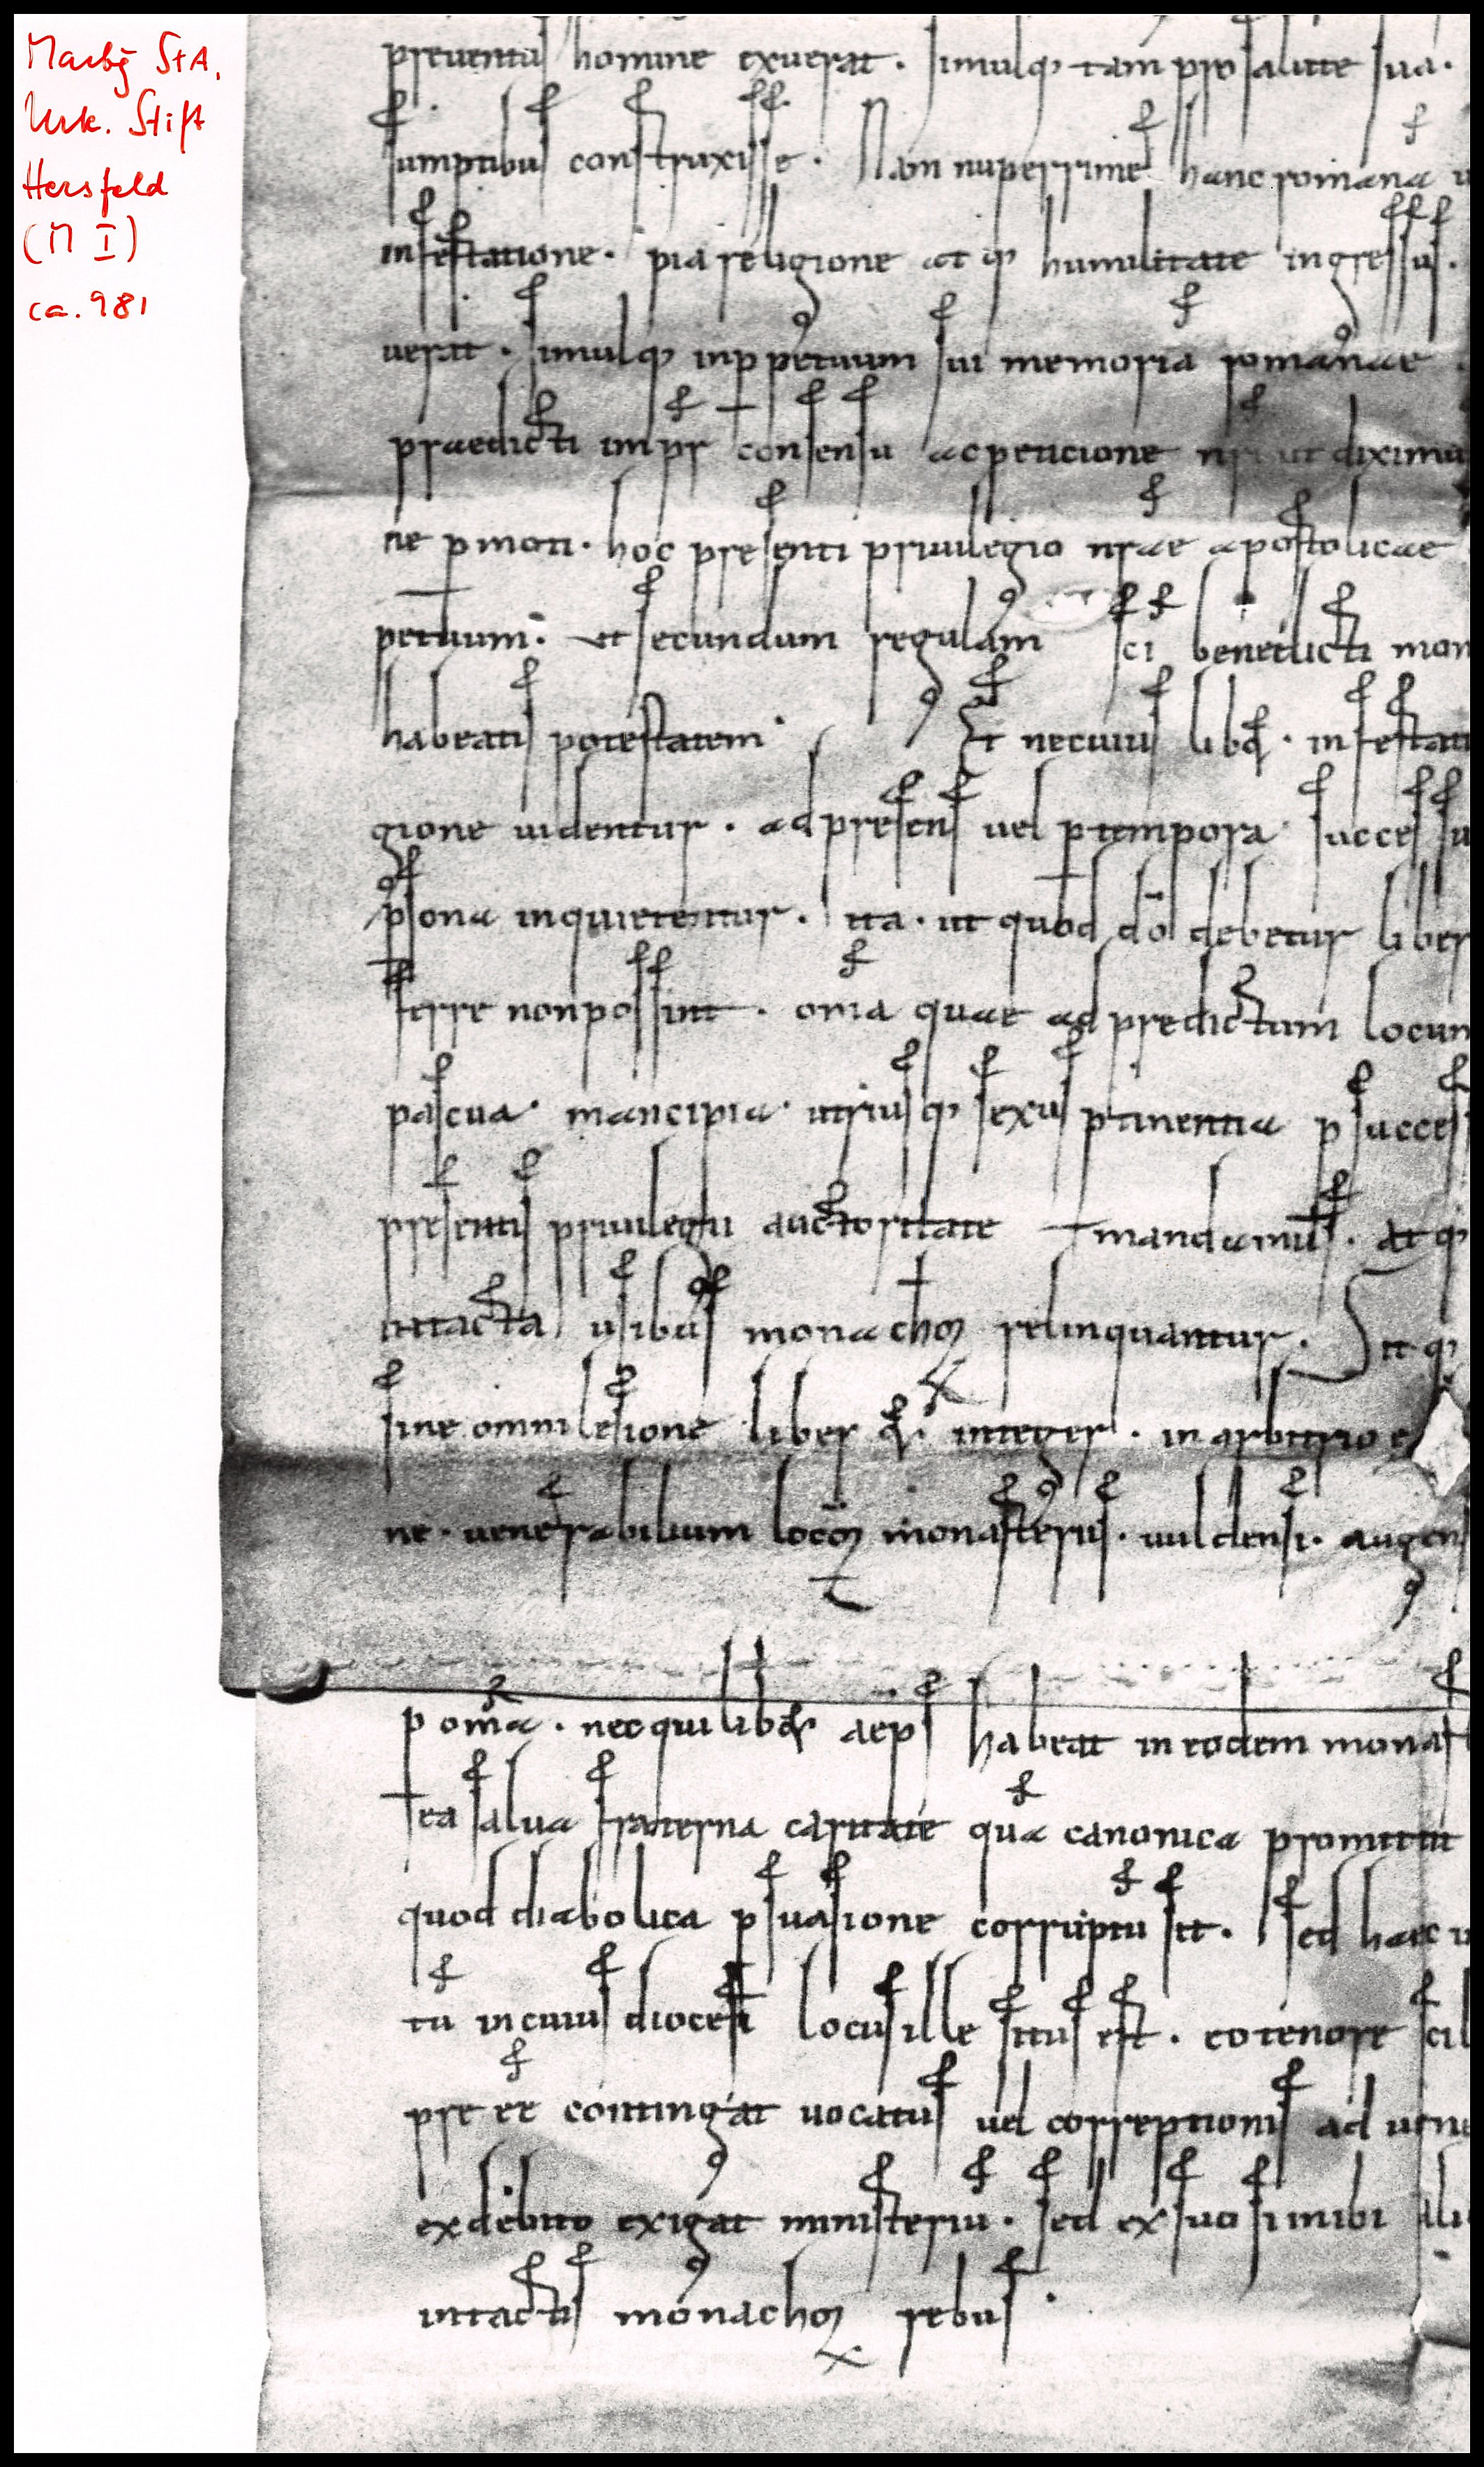 Marbg StA,
Urk. Stift
Hersfeld
(M I)
ca. 981
preuentus homine exuerat. simulq; tam pro salute sua.
sumptibus construxisse. Nam nuperrime hanc romana
infestatione. pia religione atq; humilitate ingressus.
uerat. simulq; inppetuum sui memoria romanae
praedicti impr consensu ac peticione nri ut diximus
ne pmon. hoc presenti priuilegio nrae apostolicae
petuum. et secundum regulam sci benedicti mon
habeatis potestatem Et necuius libet. infestati
gione uidentur. ad presens uel p tempora successu
psona inquietentur. ita. ut quod do debetur liber
ferre non possint. oma quae ad predictum locum
pascua. mancipia. utriusq; sexus ptinentia p succes
presentis priuilegii auctoritate mandamus. atq;
intacta usibus monachoꝝ relinquantur. Sitq;
sine omni lesione liber &. integer. in arbitrio
ne. uenerabilium locoꝝ monasteriis. uuldensi. augens
p oma. nec quilibet aeps habeat in eodem monast
ea salua fraterna caritate qua canonica promittit
quod diabolica psuasione corruptu sit. Sed haec
tu in cuius diocesi locus ille situs est. eo tenore scil
pre ee contingat uocatus uel correptionis ad
ex debito exigat ministeriu. sed ex suo sumibi
intactis monachoꝝ rebus.